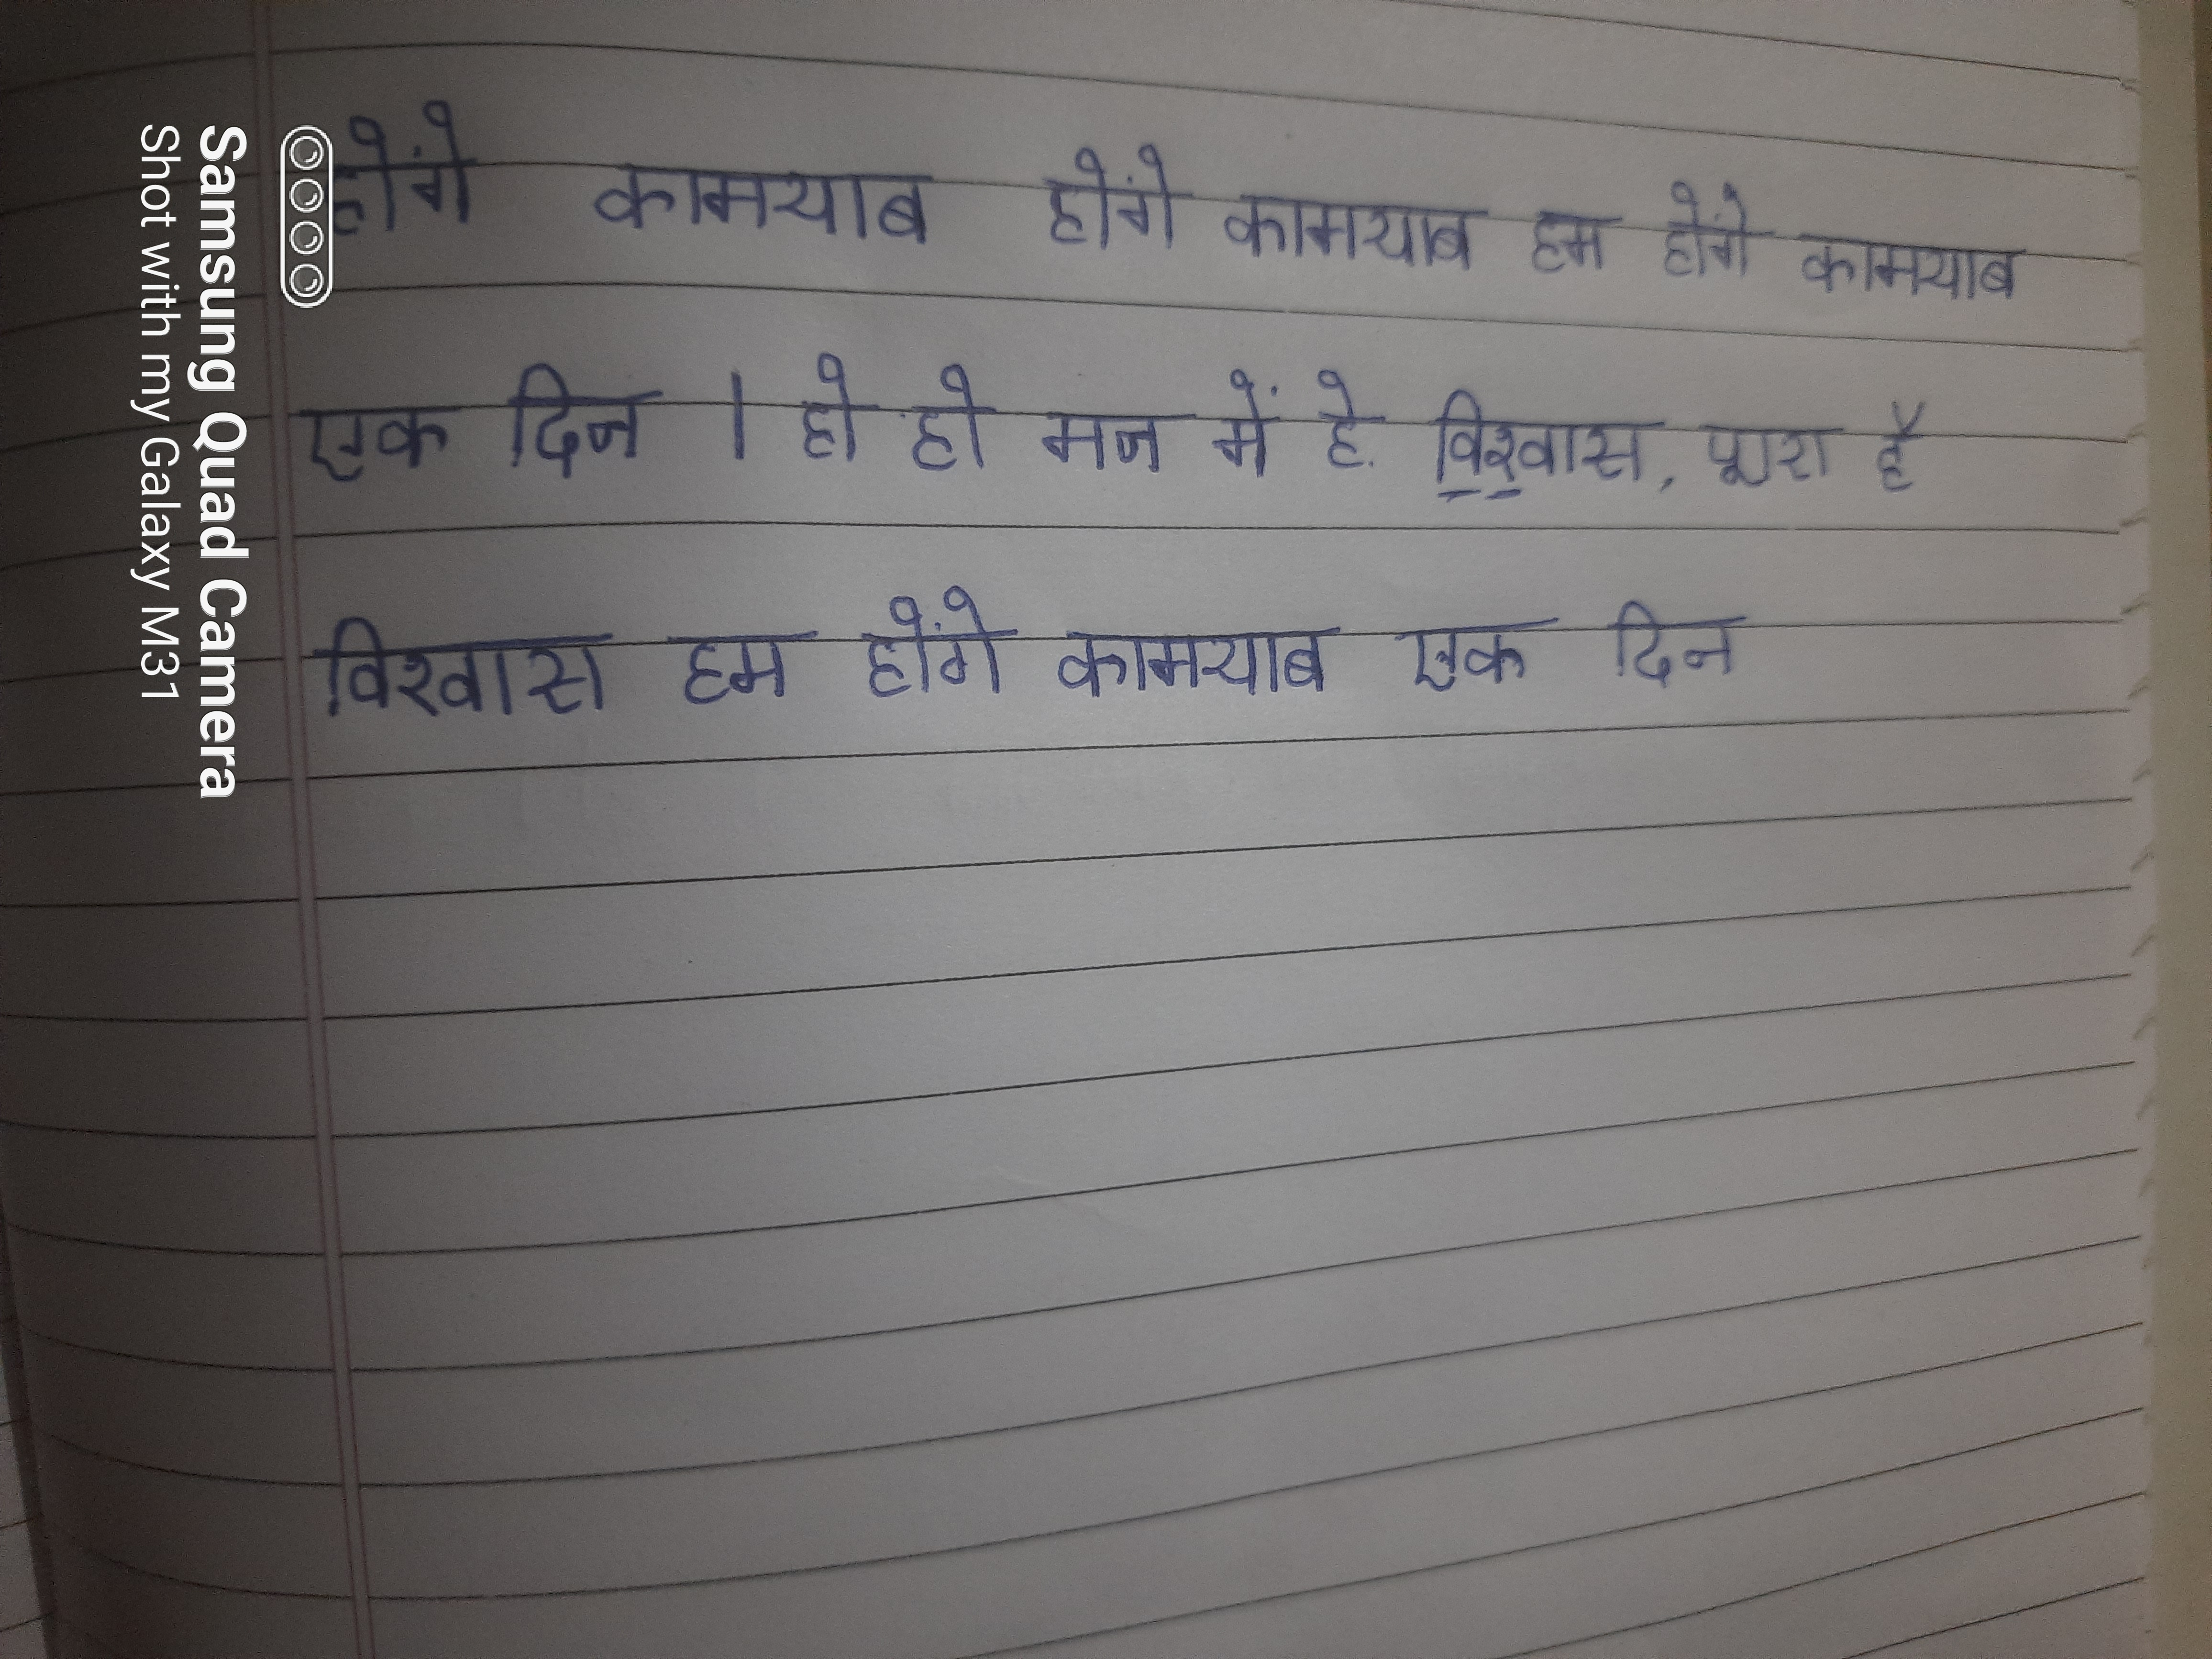 होंगे कामयाब होंगे कामयाब हम होंगे कामयाब
एक दिन । हो हो मन में हे विश्वास, पूरा है
विश्वास हम होंगे कामयाब एक दिन
Samsung Quad Camera
Shot with my Galaxy M31